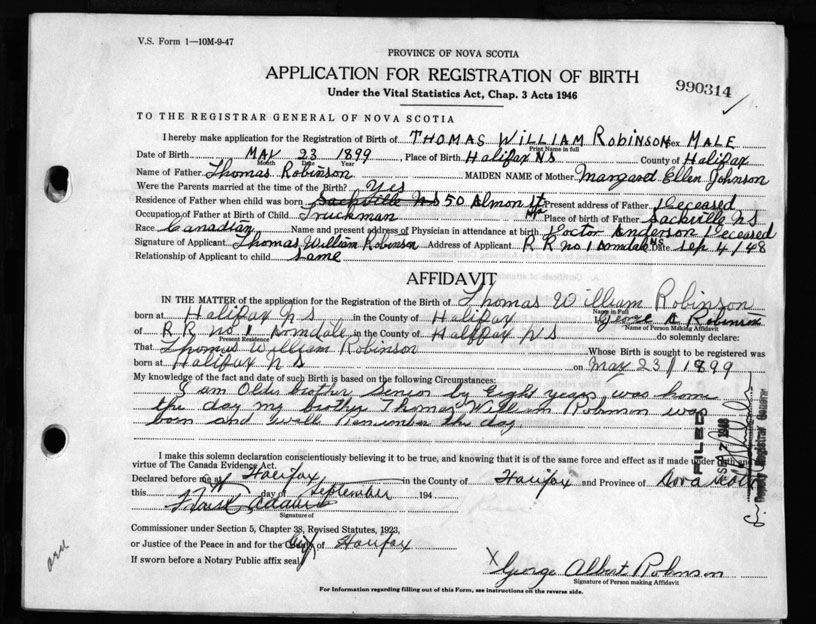 V.S. Form 1—10M-9-47
PROVINCE OF NOVA SCOTIA
APPLICATION FOR REGISTRATION OF BIRTH
990314
Under the Vital Statistics Act, Chap. 3 Acts 1946
TO THE REGISTRAR GENERAL OF NOVA SCOTIA
I hereby make application for the Registration of Birth of THOMAS WILLIAM ROBINSON Sex MALE
Print Name in full
Date of Birth MAY 23 1899, Place of Birth Halifax NS County of Halifax
Month Date Year
Name of Father Thomas Robinson MAIDEN NAME of Mother Margaret Ellen Johnson
Were the Parents married at the time of the Birth? Yes
Residence of Father when child was born Sackville NS 50 Almon St Hfx Present address of Father Deceased
Occupation of Father at Birth of Child Truckman Place of birth of Father Sackville NS
Race Canadian Name and present address of Physician in attendance at birth Doctor Anderson Deceased
Signature of Applicant Thomas William Robinson Address of Applicant R R no 1 Armdale NS Date Sep 4/48
Relationship of Applicant to child same
AFFIDAVIT
IN THE MATTER of the application for the Registration of the Birth of Thomas William Robinson
Name in Full
born at Halifax N S in the County of Halifax I, George A Robinson
Name of Person Making Affidavit
of R R No 1 Armdale in the County of Halifax NS do solemnly declare:
Present Residence
That Thomas William Robinson Whose Birth is sought to be registered was
born at Halifax NS on May 23/1899
My knowledge of the fact and date of such Birth is based on the following Circumstances:
I am Older brother Senior by Eight years was home
the day my brother Thomas William Robinson was
born and well Remember the day
I make this solemn declaration conscientiously believing it to be true, and knowing that it is of the same force and effect as if made under oath and
virtue of The Canada Evidence Act.
Declared before me at Halifax in the County of Halifax and Province of Nova Scotia
this day of September 194
Signature of
Commissioner under Section 5, Chapter 38, Revised Statutes, 1923,
or Justice of the Peace in and for the City of Halifax
If sworn before a Notary Public affix seal
X George Albert Robinson
Signature of Person making Affidavit
For Information regarding filling out of this Form, see instructions on the reverse side.
FILED
SEP 7 1948
Deputy Registrar General